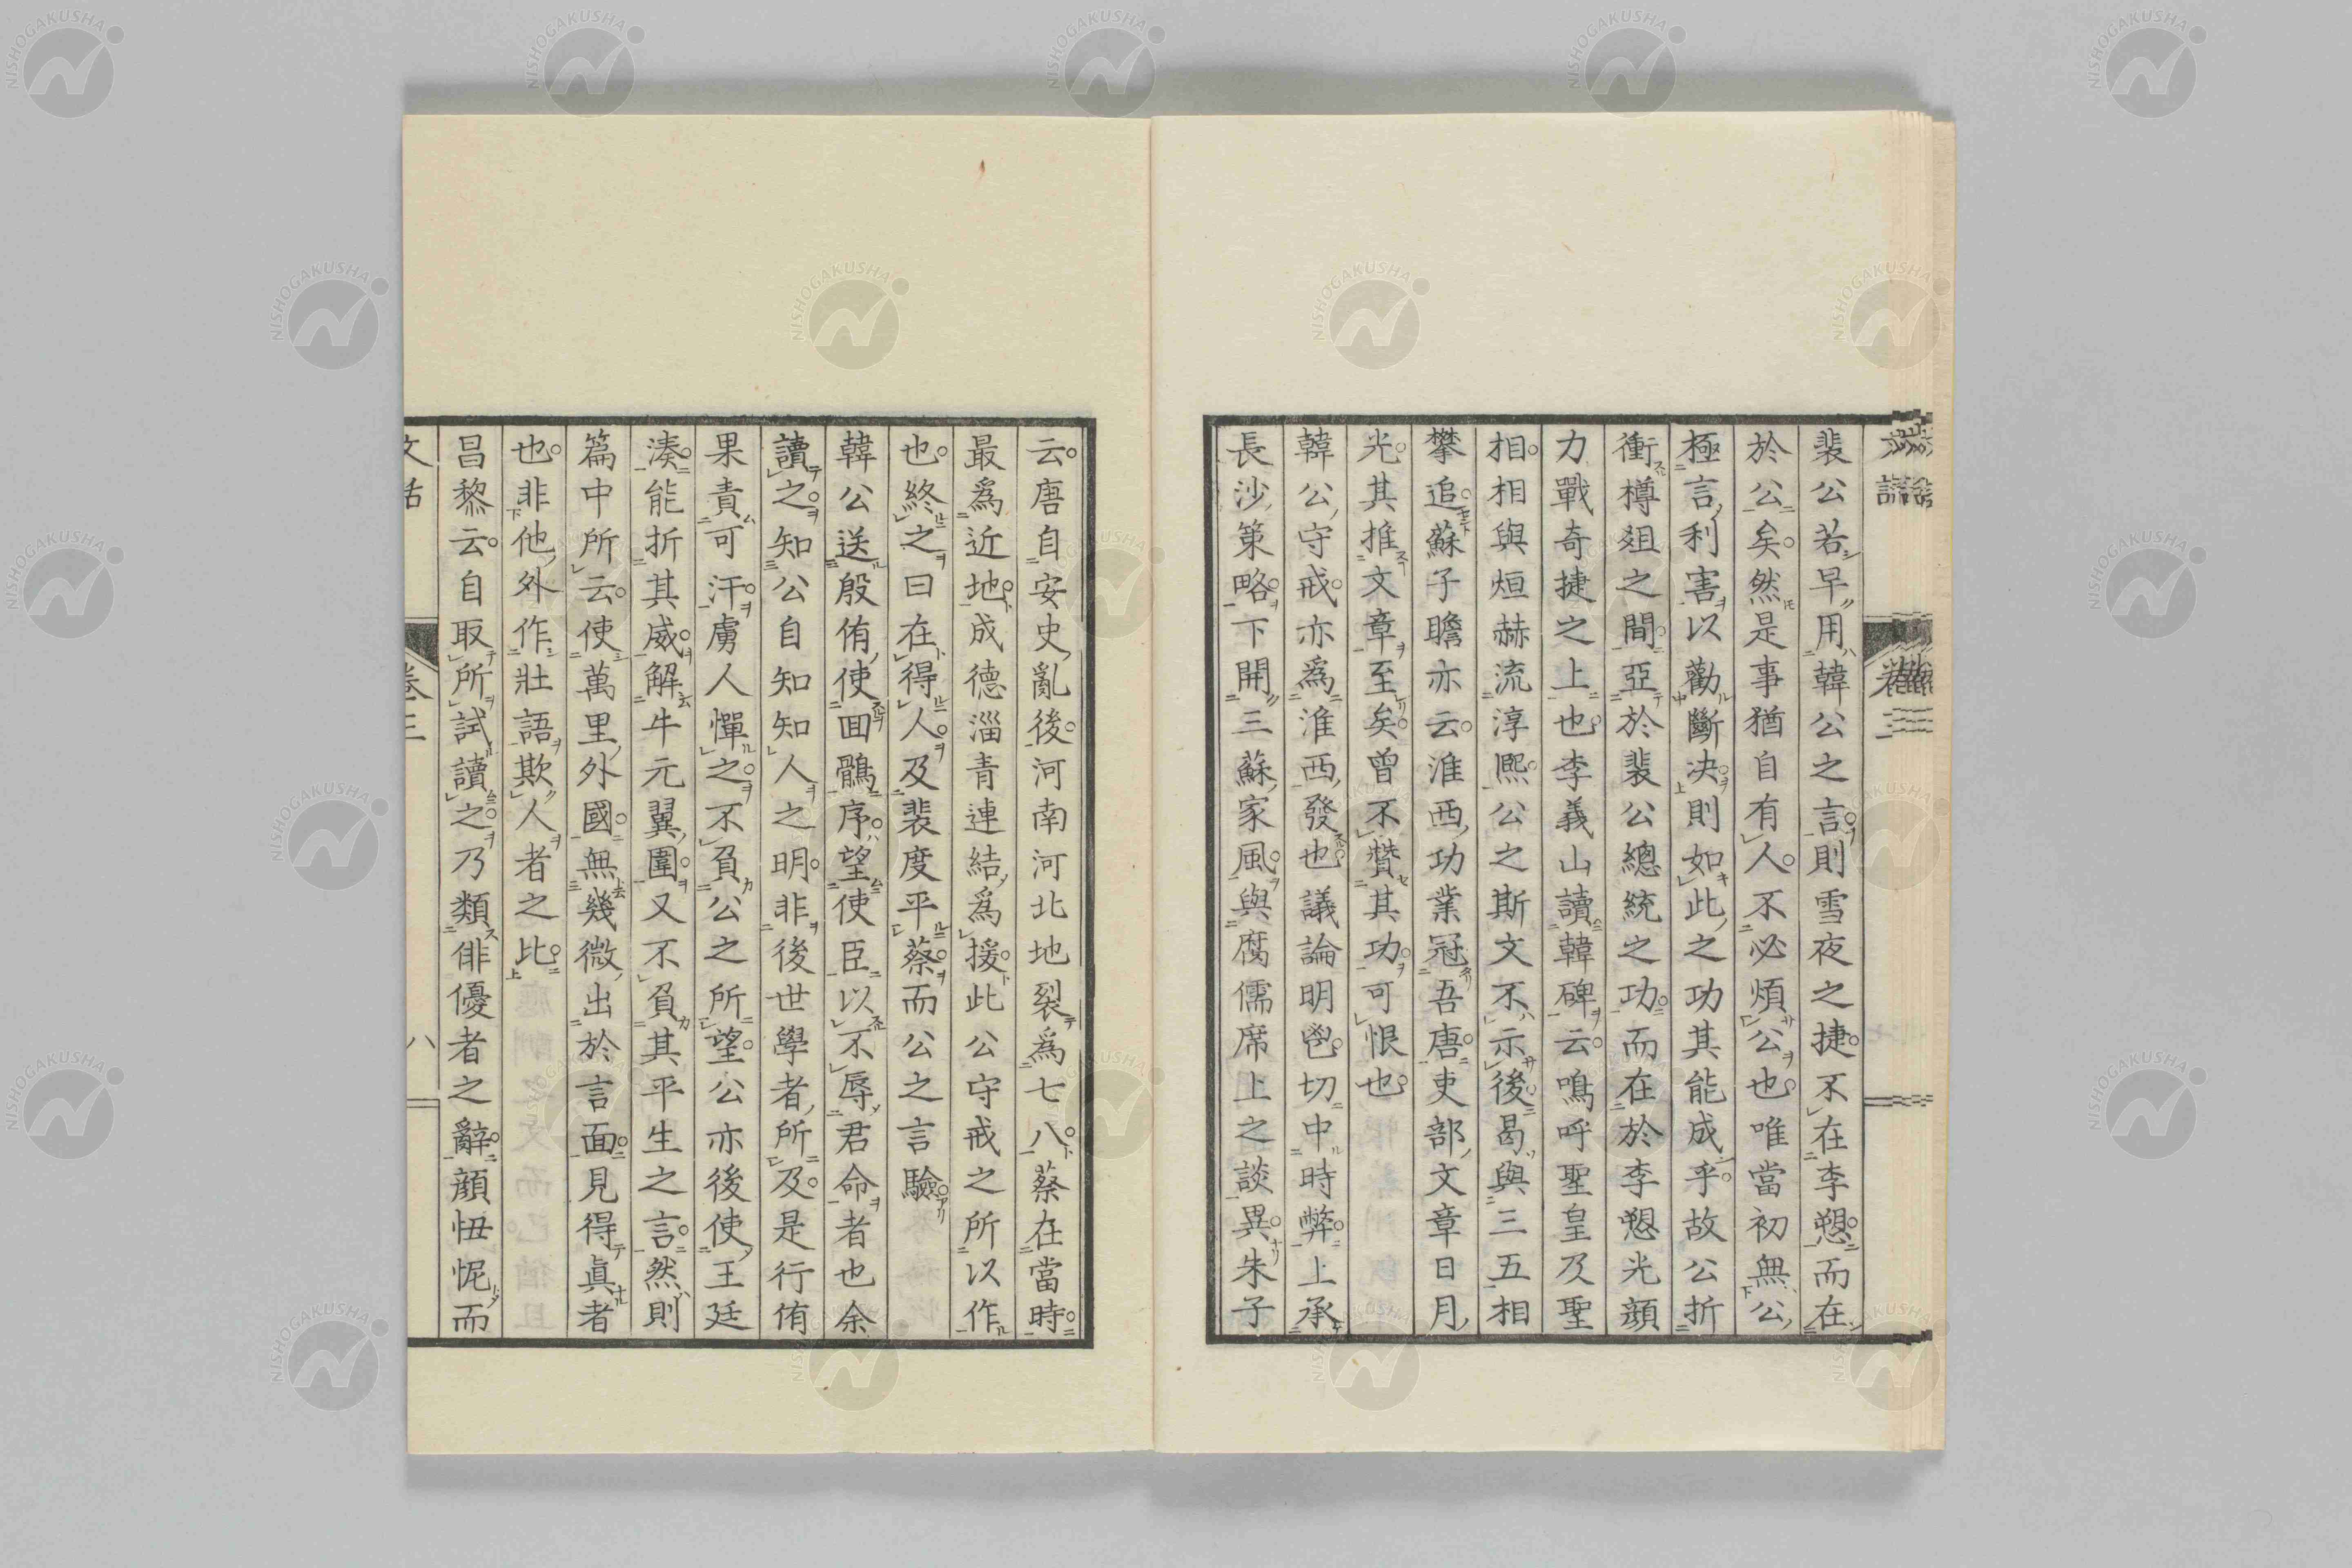 裴公若早用韓公之言則雪夜之捷不在李愬而在
於公矣然是事猶自有人不必煩公也唯當初無公
極言利害以勸斷决則如此之功其能成乎故公折
衝樽爼之間亞於裴公總統之功而在於李愬光顔
力戰奇捷之上也李義山讀韓碑云嗚呼聖皇及聖
相相與烜赫流淳熈公之斯文不示後曷與三五相
攀追蘇子瞻亦云淮西功業冠吾唐吏部文章日月
光其推文章至矣曾不贊其功可恨也
韓公守戒亦爲淮西發也議論明鬯切中時弊上承
長沙策略下開三蘇家風與腐儒席上之談異朱子
云唐自安史亂後河南河北地裂爲七八蔡在當時
最爲近地成德淄青連結爲援此公守戒之所以作
也終之曰在得人及裴度平蔡而公之言驗
韓公送殷侑使囬鶻序望使臣以不辱君命者也余
讀之知公自知知人之明非後世學者所及是行侑
果責可汗虜人憚之不負公之所望公亦後使王廷
湊能折其威解牛元翼圍又不負其平生之言然則
篇中所云使萬里外國無幾微出於言面見得眞者
也非他外作壯語欺人者之比
昌黎云自取所試讀之乃類俳優者之辭顔忸怩而
文話
卷三
八
NISHOGAKUSHA